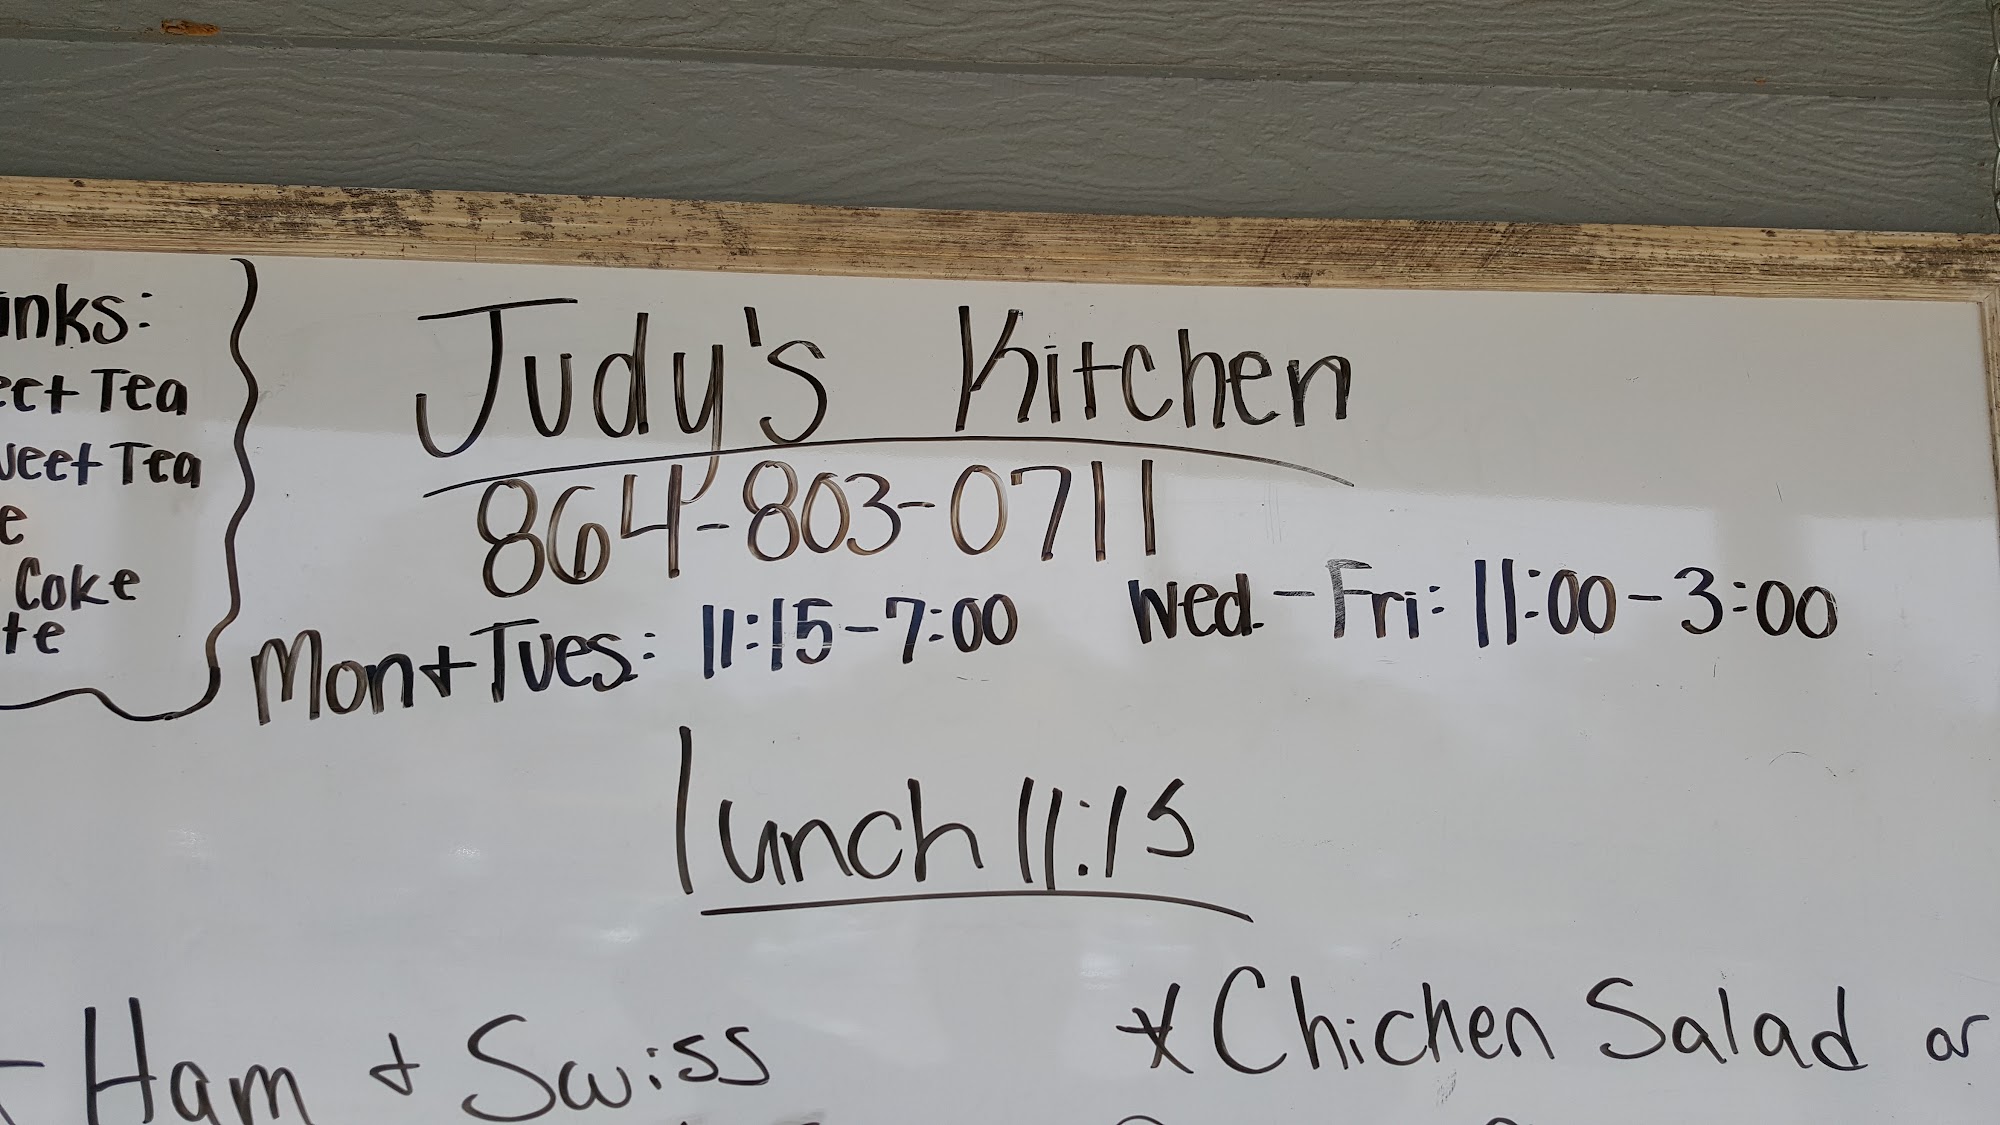 inks:
eet Tea
weet Tea
e
Coke
te
Judy's Kitchen
864-803-0711
Mon + Tues: 11:15-7:00 Wed. - Fri: 11:00-3:00
lunch 11:15
Ham + Swiss
* Chicken Salad or